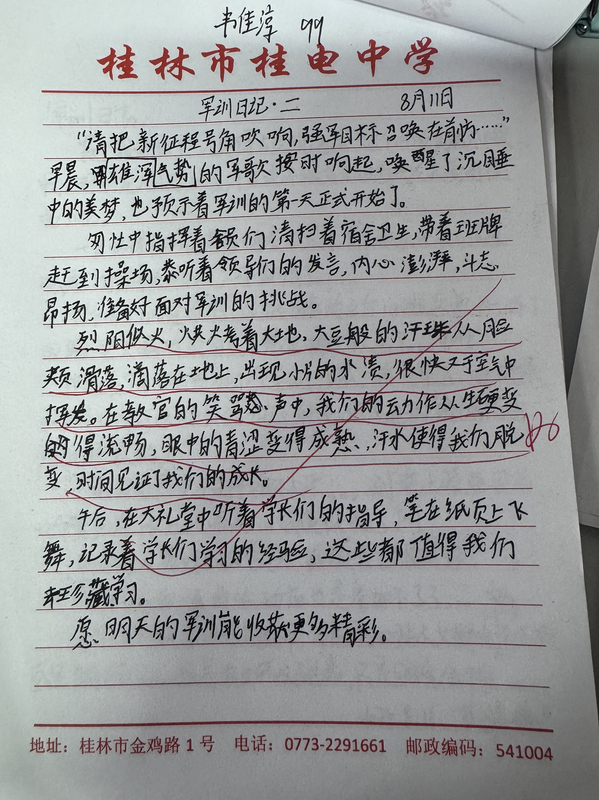 韦佳淳 99
桂林市桂电中学
军训日记·二 8月11日
“请把新征程号角吹响,强军目标召唤在前方……”
早晨,雄浑气势的军歌按时响起,唤醒了沉睡
中的美梦,也预示着军训的第一天正式开始了。
匆忙中指挥着舍员们清扫着宿舍卫生,带着班牌
赶到操场,恭听着领导们的发言,内心澎湃,斗志
昂扬,准备好面对军训的挑战。
烈阳似火,烘烤着大地。大豆般的汗珠从脸
颊滑落,滴落在地上,出现小片的水渍,很快又于空气中
挥发。在教官的笑骂声中,我们的动作从生硬变
得流畅,眼中的青涩变得成熟,汗水使得我们脱
变,时间见证了我们的成长。
午后,在大礼堂中听着学长们的指导,笔在纸页上飞
舞,记录着学长们学习的经验,这些都值得我们
珍藏学习。
愿明天的军训能收获更多精彩。
地址:桂林市金鸡路1号 电话:0773-2291661 邮政编码:541004